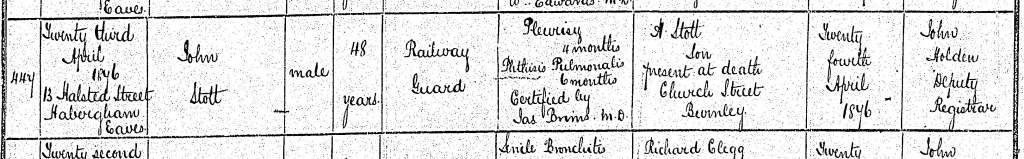 Eaves
W. Edwards M.D.
447
Twenty third
April
1896
13 Halsted Street
Habergham
Eaves
John
Stott
male
48
years
Railway
Guard
Pleurisy
4 months
Phthisis Pulmonalis
6 months
Certified by
Jas Brims. M.D.
A Stott
Son
present at death
Church Street
Burnley
Twenty
fourth
April
1896
John
Holden
Deputy
Registrar
Twenty second
Senile Bronchitis
Richard Clegg
Twenty
John